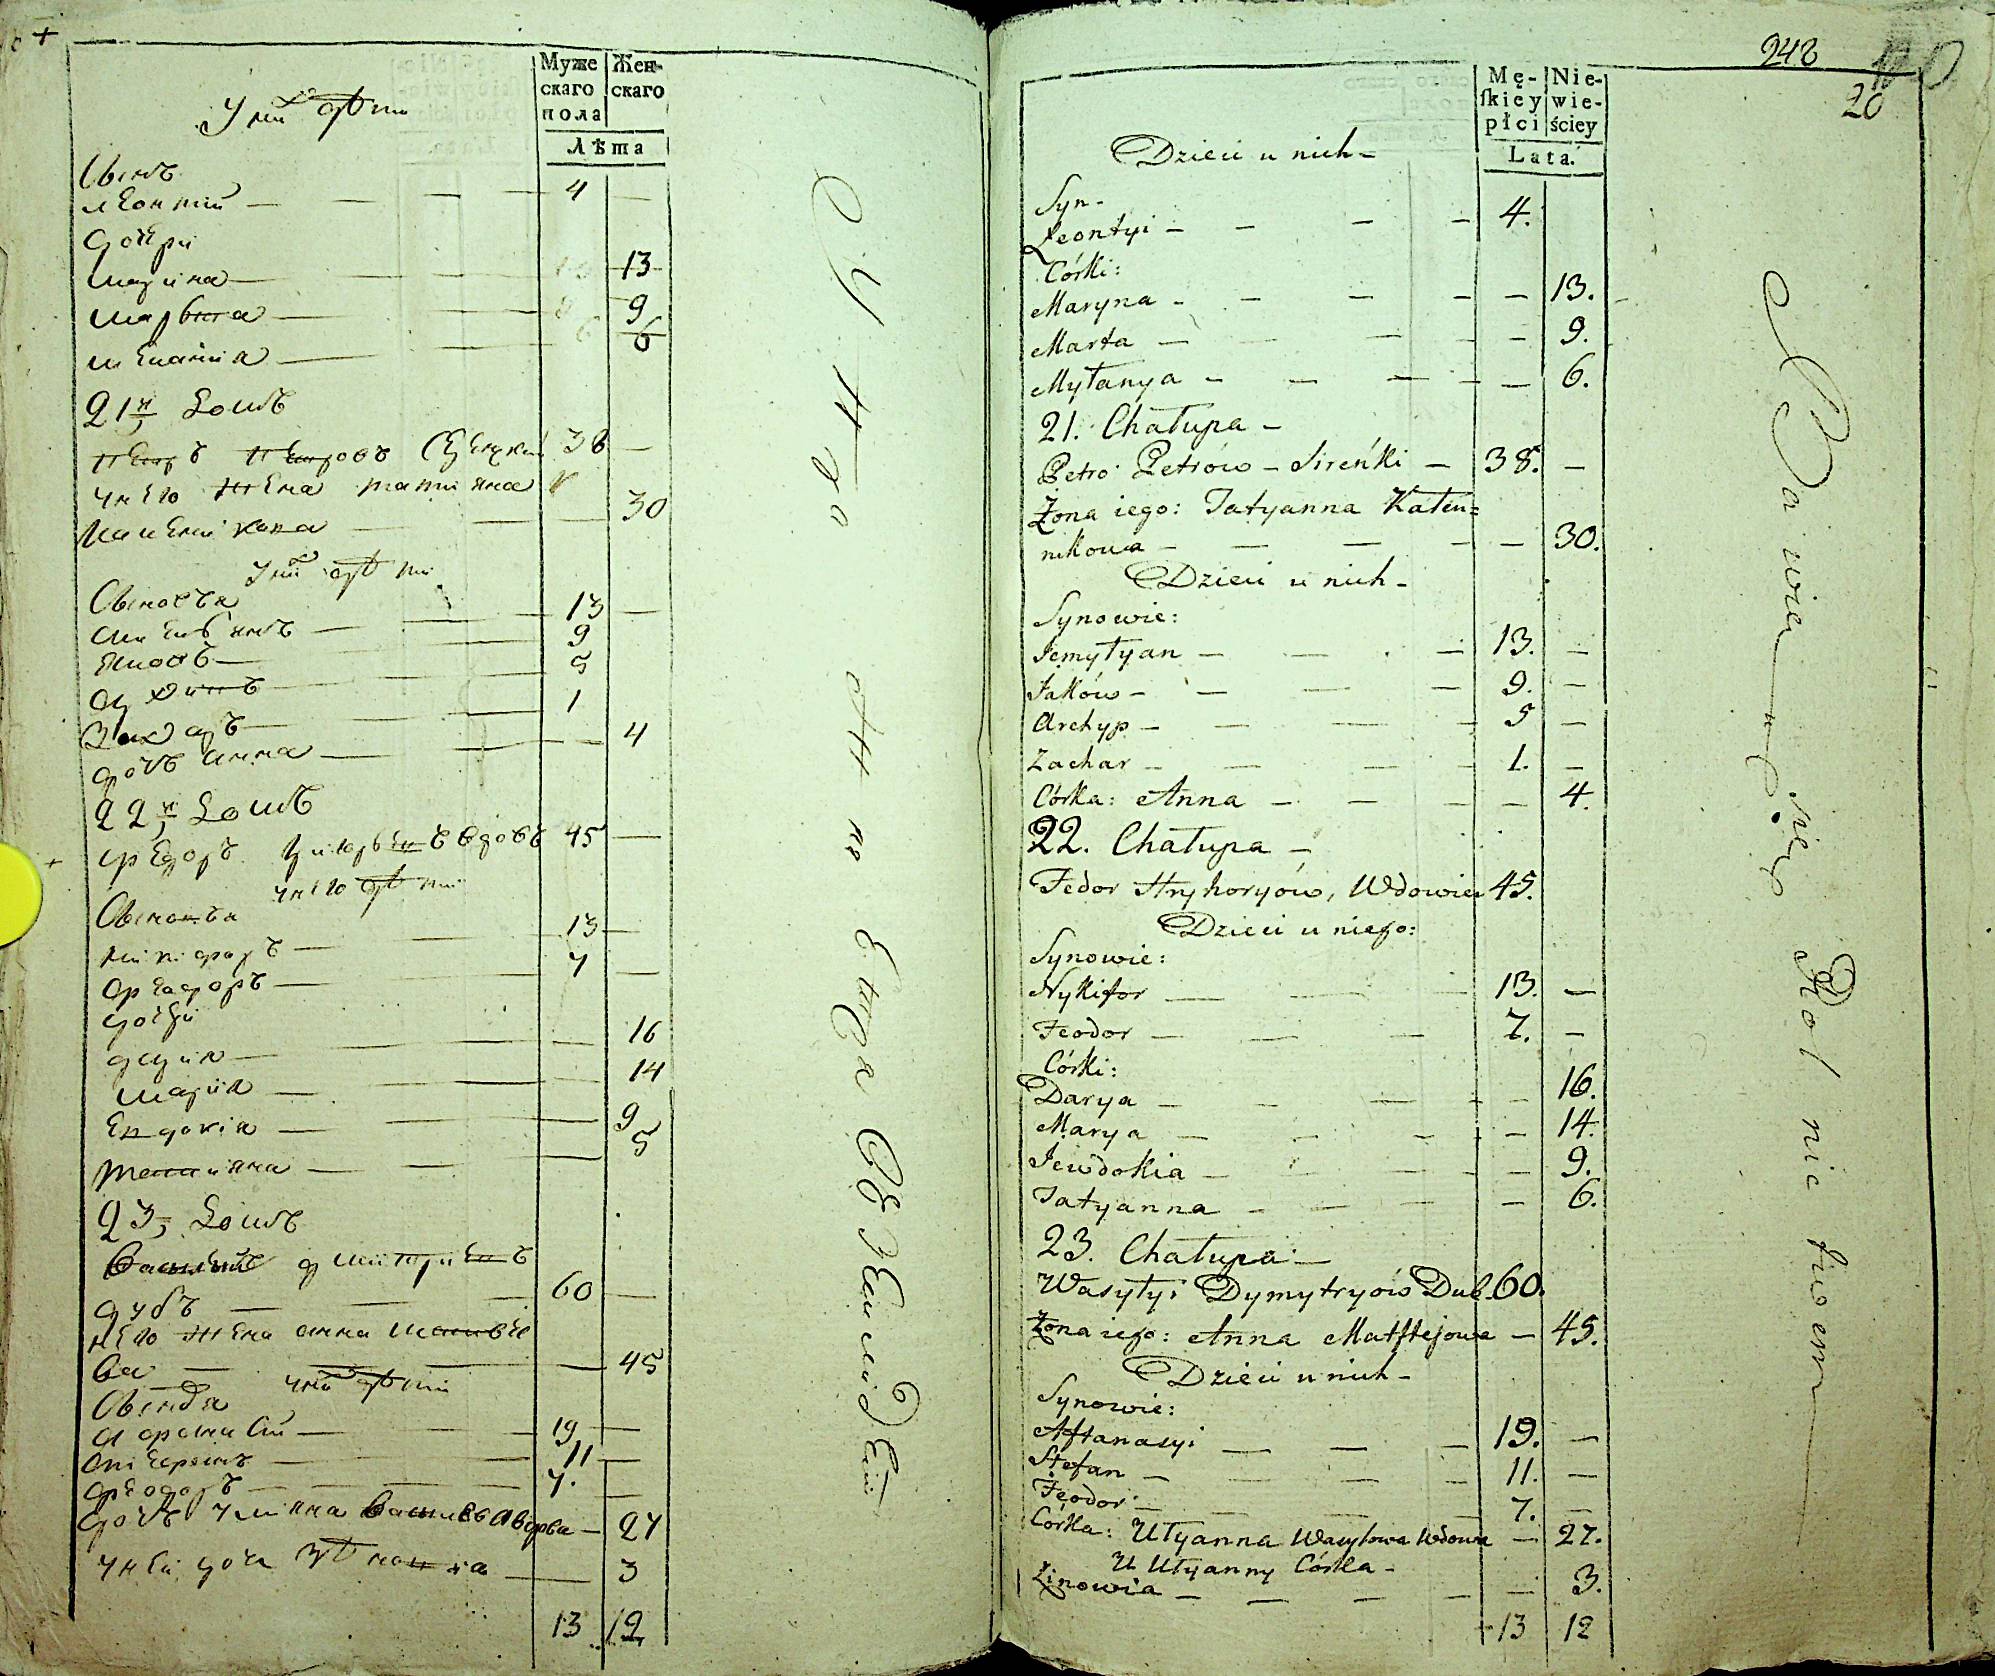 Муже
скаго
пола
Жен-
скаго
Лѣта
У них дѣти
Сынъ
Леонтий — — — 4 —
дочери
Марина — — — 13
Марѳа — — 9
Мелания — — 6
21й Домъ
Петръ Петровъ 38 —
У него жена Татияна
30
У них дѣти
Сыновья
Емельянъ — — 13 —
Яковъ — 9
Архипъ — 5
Захаръ — 1
дочь Анна — — 4
22й Домъ
Ѳедоръ Григорьевъ вдовъ 45 —
У него дѣти
Сыновья
Никифоръ — 13 —
Ѳеодоръ — 7 —
дочери
Дария — 16
Мария — 14
Евдокия — 9
Татияна — 5
23, Домъ
Василий Дмитриевъ
Дубъ — — 60 —
У него жена Анна Матвѣе
ва — — 45
У них дѣти
Сыновья
Афанасий — 19 —
Стефанъ — 11 —
Феодоръ — 7. —
дочь Улияна вдова — 27
У ней дочь Зѣновия — 3
13 12
248
20
Mę-
skiey
płci
Nie-
wie-
ściey
Lata.
Dzieci u nich -
Syn -
Leontyi - - - - 4.
Córki:
Maryna - - - - - 13.
Marta - - - - 9.
Mełanya - - - - - 6.
21. Chałupa -
Petro Petrów - Sireńki - 38. -
Żona iego: Tatyanna Kałen=
nikowa - - - - - 30.
Dzieci u nich -
Synowie:
Jemyłyan - - - - 13. -
Jaków - - - - 9. -
Archyp - - - - 5 -
Zachar - - - - 1. -
Córka: Anna - - - - 4.
22. Chałupa -
Fedor Hryhoryów, Wdowiec 45.
Dzieci u niego:
Synowie:
Nykifor — — - 13. -
Feodor — — - 7. -
Córki:
Darya - - - - - 16.
Marya - - - - - 14.
Jewdokia - - - - 9.
Tatyanna - - - - 6.
23. Chałupa -
Wasyłyi Dymytryów Dub. 60.
Żona iego: Anna Matftejowa - 45.
Dzieci u nich -
Synowie:
Aftanasyi — — - 19. -
Stefan - - - - 11. -
Feodor - - - 7. -
Córka: Ułyanna Wasyłowa Wdowa - 27.
U Ułyanny Córka -
Zinowia - - - - - 3.
13 12